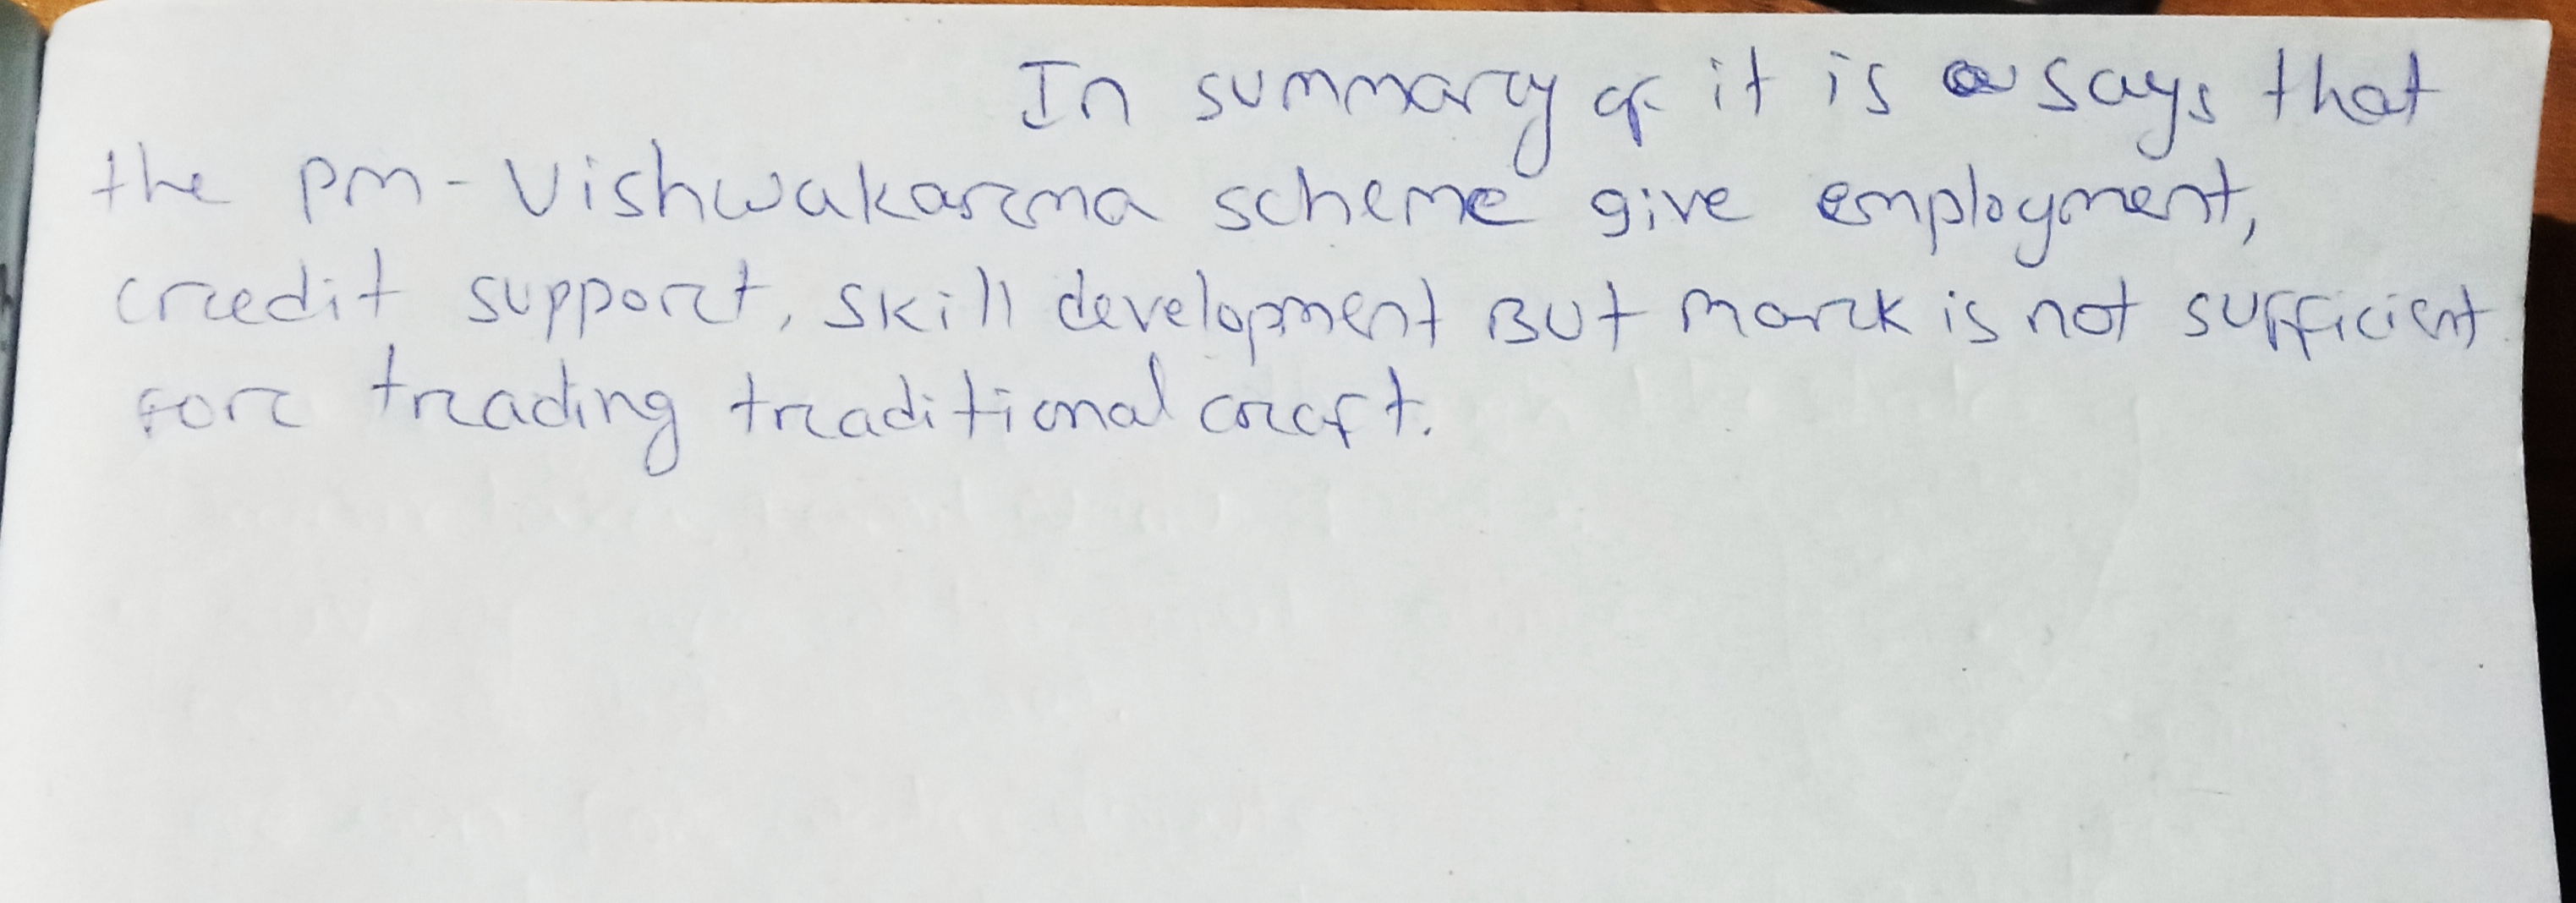 In summary of it is says that
the pm - Vishwakarma scheme give employment,
credit support, skill development But mark is not sufficient
for trading traditional craft.